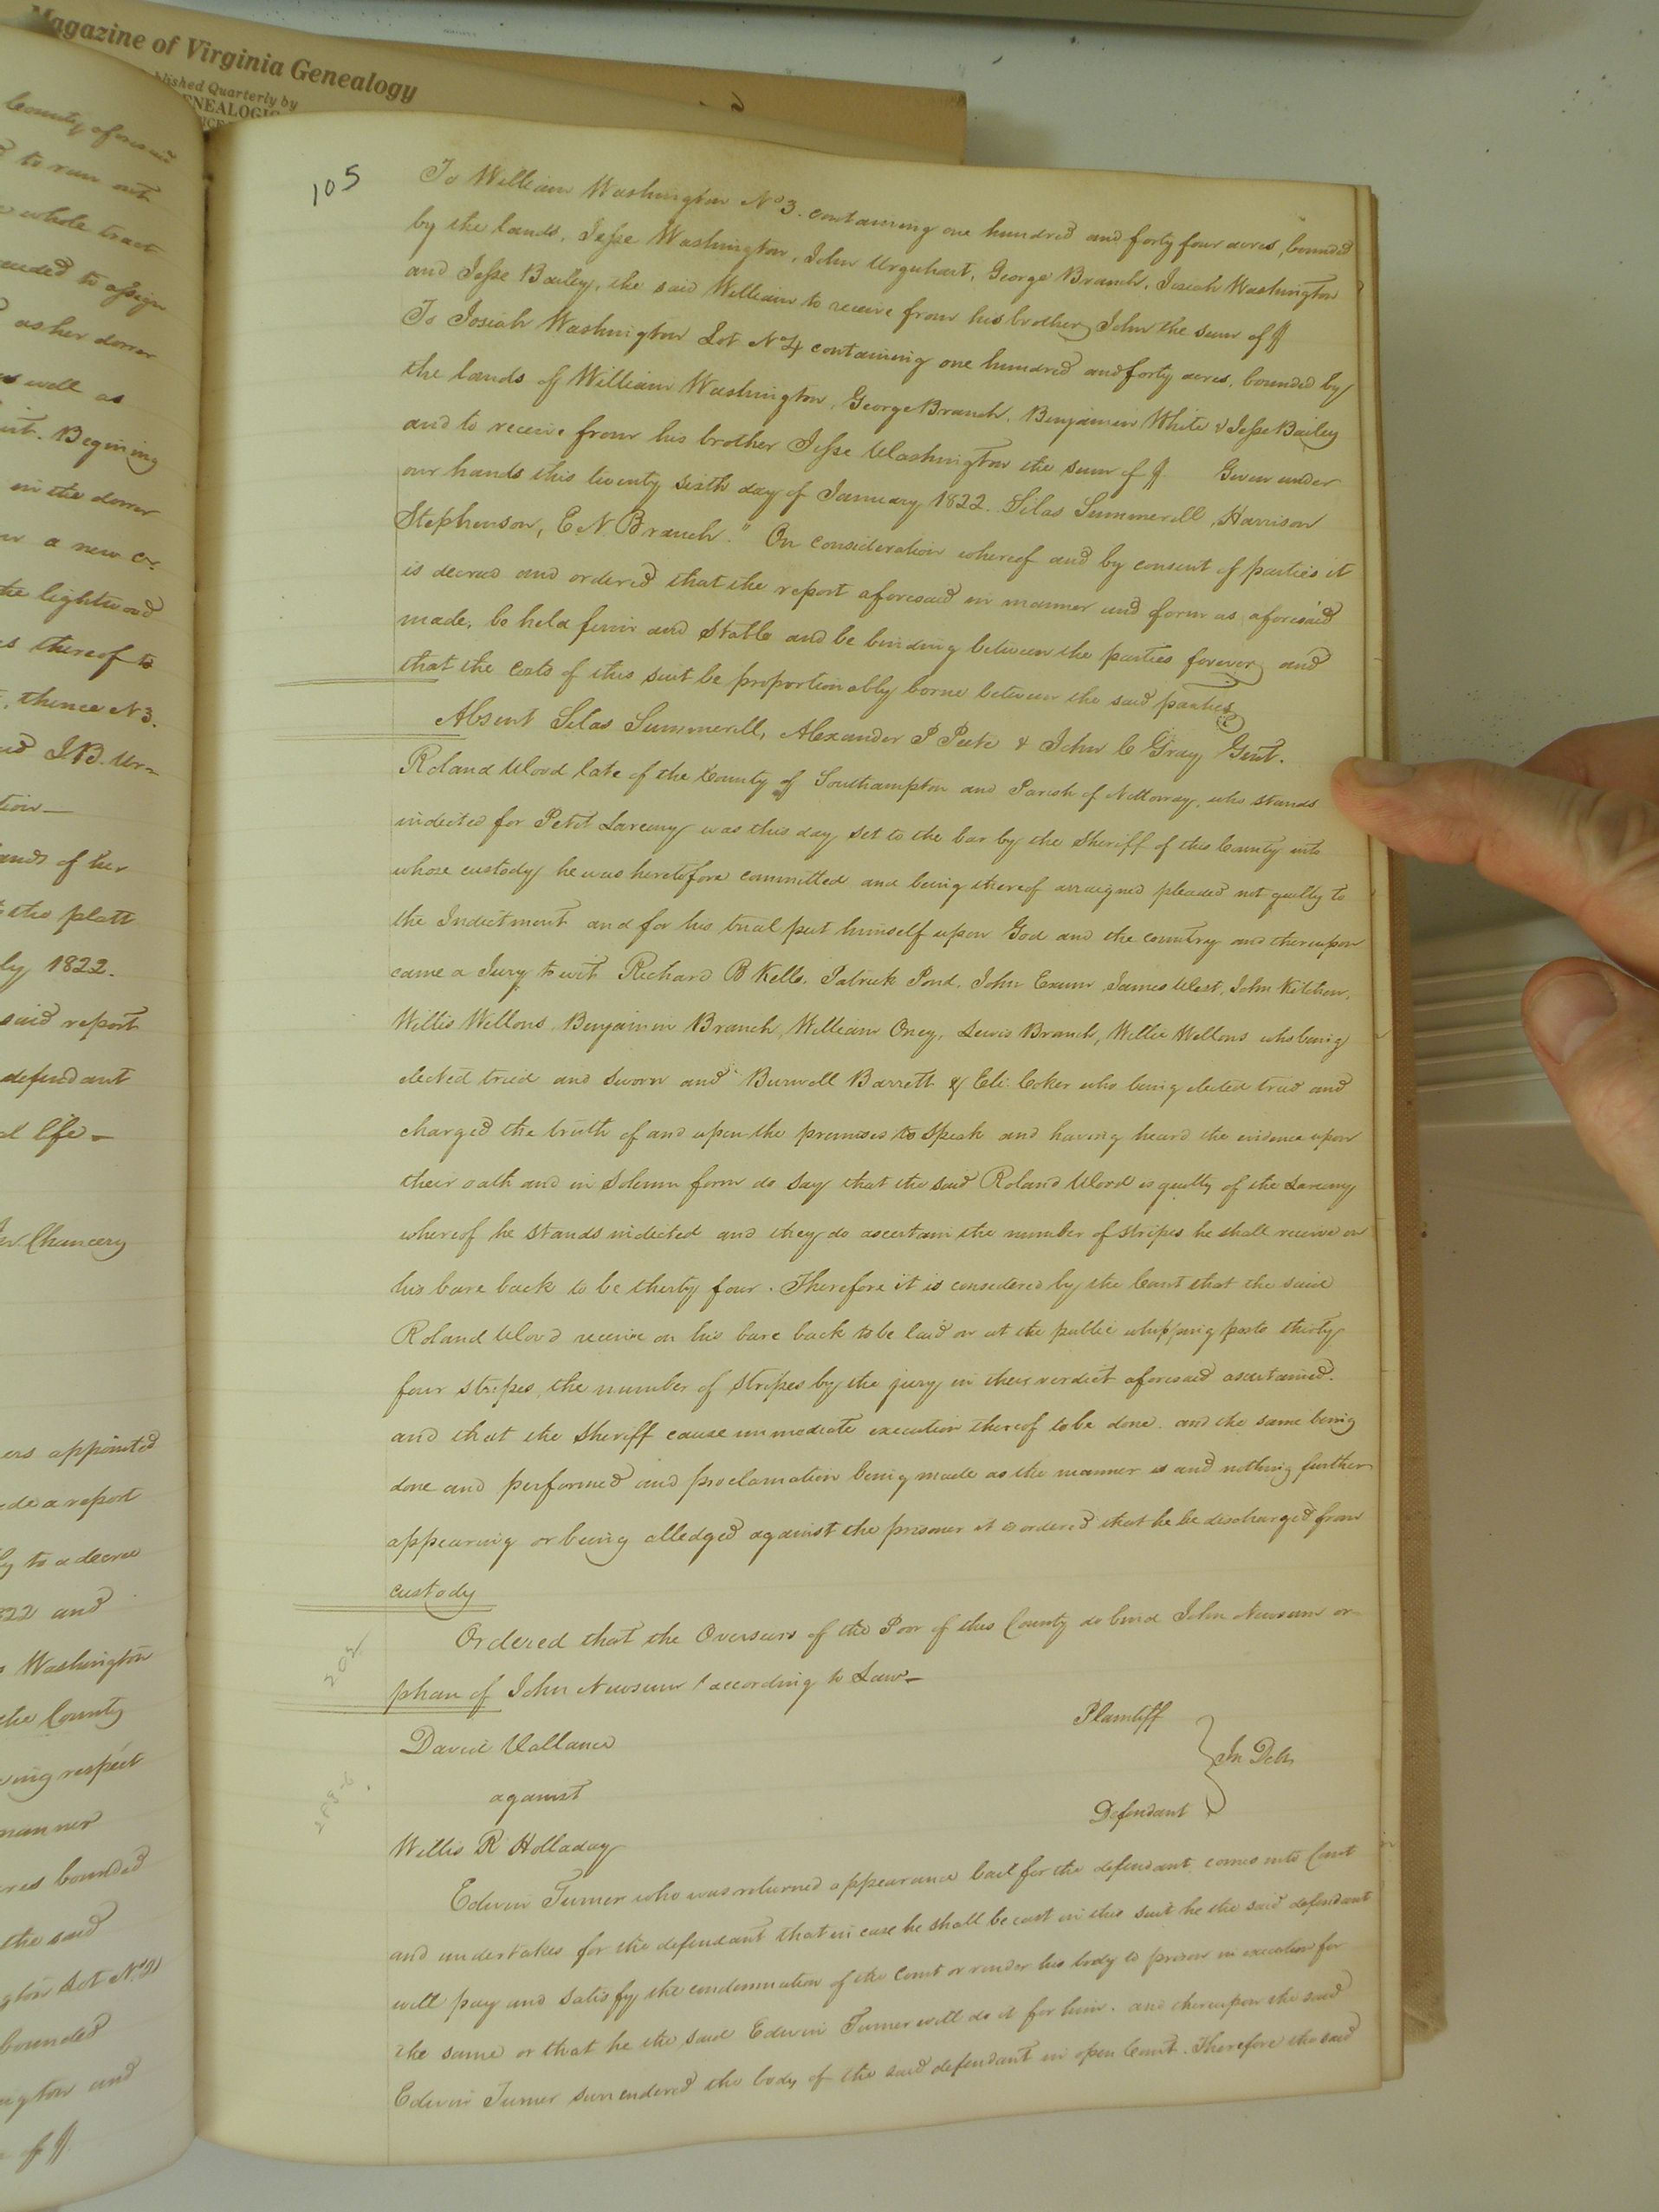 Magazine of Virginia Genealogy
Published Quarterly by
GENEALOGIC
County aforesaid
to run out
whole tract
to assign
as her dower
well as
Begining
in the dower
a new
the lightwood
thereof to
thence N 3.
J.B. Ur=
tion—
lands of her
the platt
ly 1822.
said report
defendant
life—
In Chancery
ers appointed
a report
to a decree
22 and
Washington
the County
ing respect
manner
res bounded
the said
Lot No. 2
bounded
ington and
of $
105
To William Washington No 3. containing one hundred and forty four acres, bounded
by the lands, Jesse Washington, John Urquhart, George Branch, Josiah Washington
and Jesse Bailey, the said William to receive from his brother John the sum of $
To Josiah Washington Lot No 4 containing one hundred and forty acres, bounded by
the lands of William Washington, George Branch, Benjamin White & Jesse Bailey
and to receive from his brother Jesse Washington the sum of $ Given under
our hands this twenty sixth day of January 1822. Silas Summerell, Harrison
Stephenson, E. N. Branch." On consideration whereof and by consent of parties it
is decreed and ordered that the report aforesaid in manner and form as aforesaid
made, be held firm and stable and be binding between the parties forever and
that the costs of this suit be proportionably borne between the said parties
Absent Silas Summerell, Alexander P Peete & John C Gray Gent.
Roland Word late of the County of Southampton and Parish of Nottoway, who stands
indicted for Petit Larceny was this day set to the bar by the Sheriff of this County into
whose custody he was heretofore committed and being thereof arraigned pleaded not guilty to
the Indictment and for his trial put himself upon God and the country and thereupon
came a Jury to wit Richard B Kello, Patrick Pond, John Exum, James West, John Kitchen,
Willis Wellons, Benjamin Branch, William Oney, Lewis Branch, Willie Wellons who being
elected tried and sworn and Burwell Barrett & Eli Coker who being elected tried and
charged the truth of and upon the premises to speak and having heard the evidence upon
their oath and in solemn form do say that the said Roland Word is guilty of the Larceny
whereof he stands indicted and they do ascertain the number of stripes he shall receive on
his bare back to be thirty four. Therefore it is considered by the Court that the said
Roland Word receive on his bare back to be laid on at the public whipping posts thirty
four stripes, the number of stripes by the jury in their verdict aforesaid ascertained.
and that the Sheriff cause immediate execution thereof to be done. and the same being
done and performed and proclamation being made as the manner is and nothing further
appearing or being alledged against the prisoner it is ordered that he be discharged from
custody
202
Ordered that the Overseers of the Poor of this County do bind John Newsum or=
phan of John Newsum according to Law—
David Vallance
Plaintiff
against
In Debt
Willis R Holladay
Defendant
Edwin Turner who was returned appearance bail for the defendant comes into Court
and undertakes for the defendant that in case he shall be cast in this suit he the said defendant
will pay and satisfy the condemnation of the Court or render his body to prison in execution for
the same or that he the said Edwin Turner will do it for him. and thereupon the said
Edwin Turner surrendered the body of the said defendant in open Court. Therefore the said